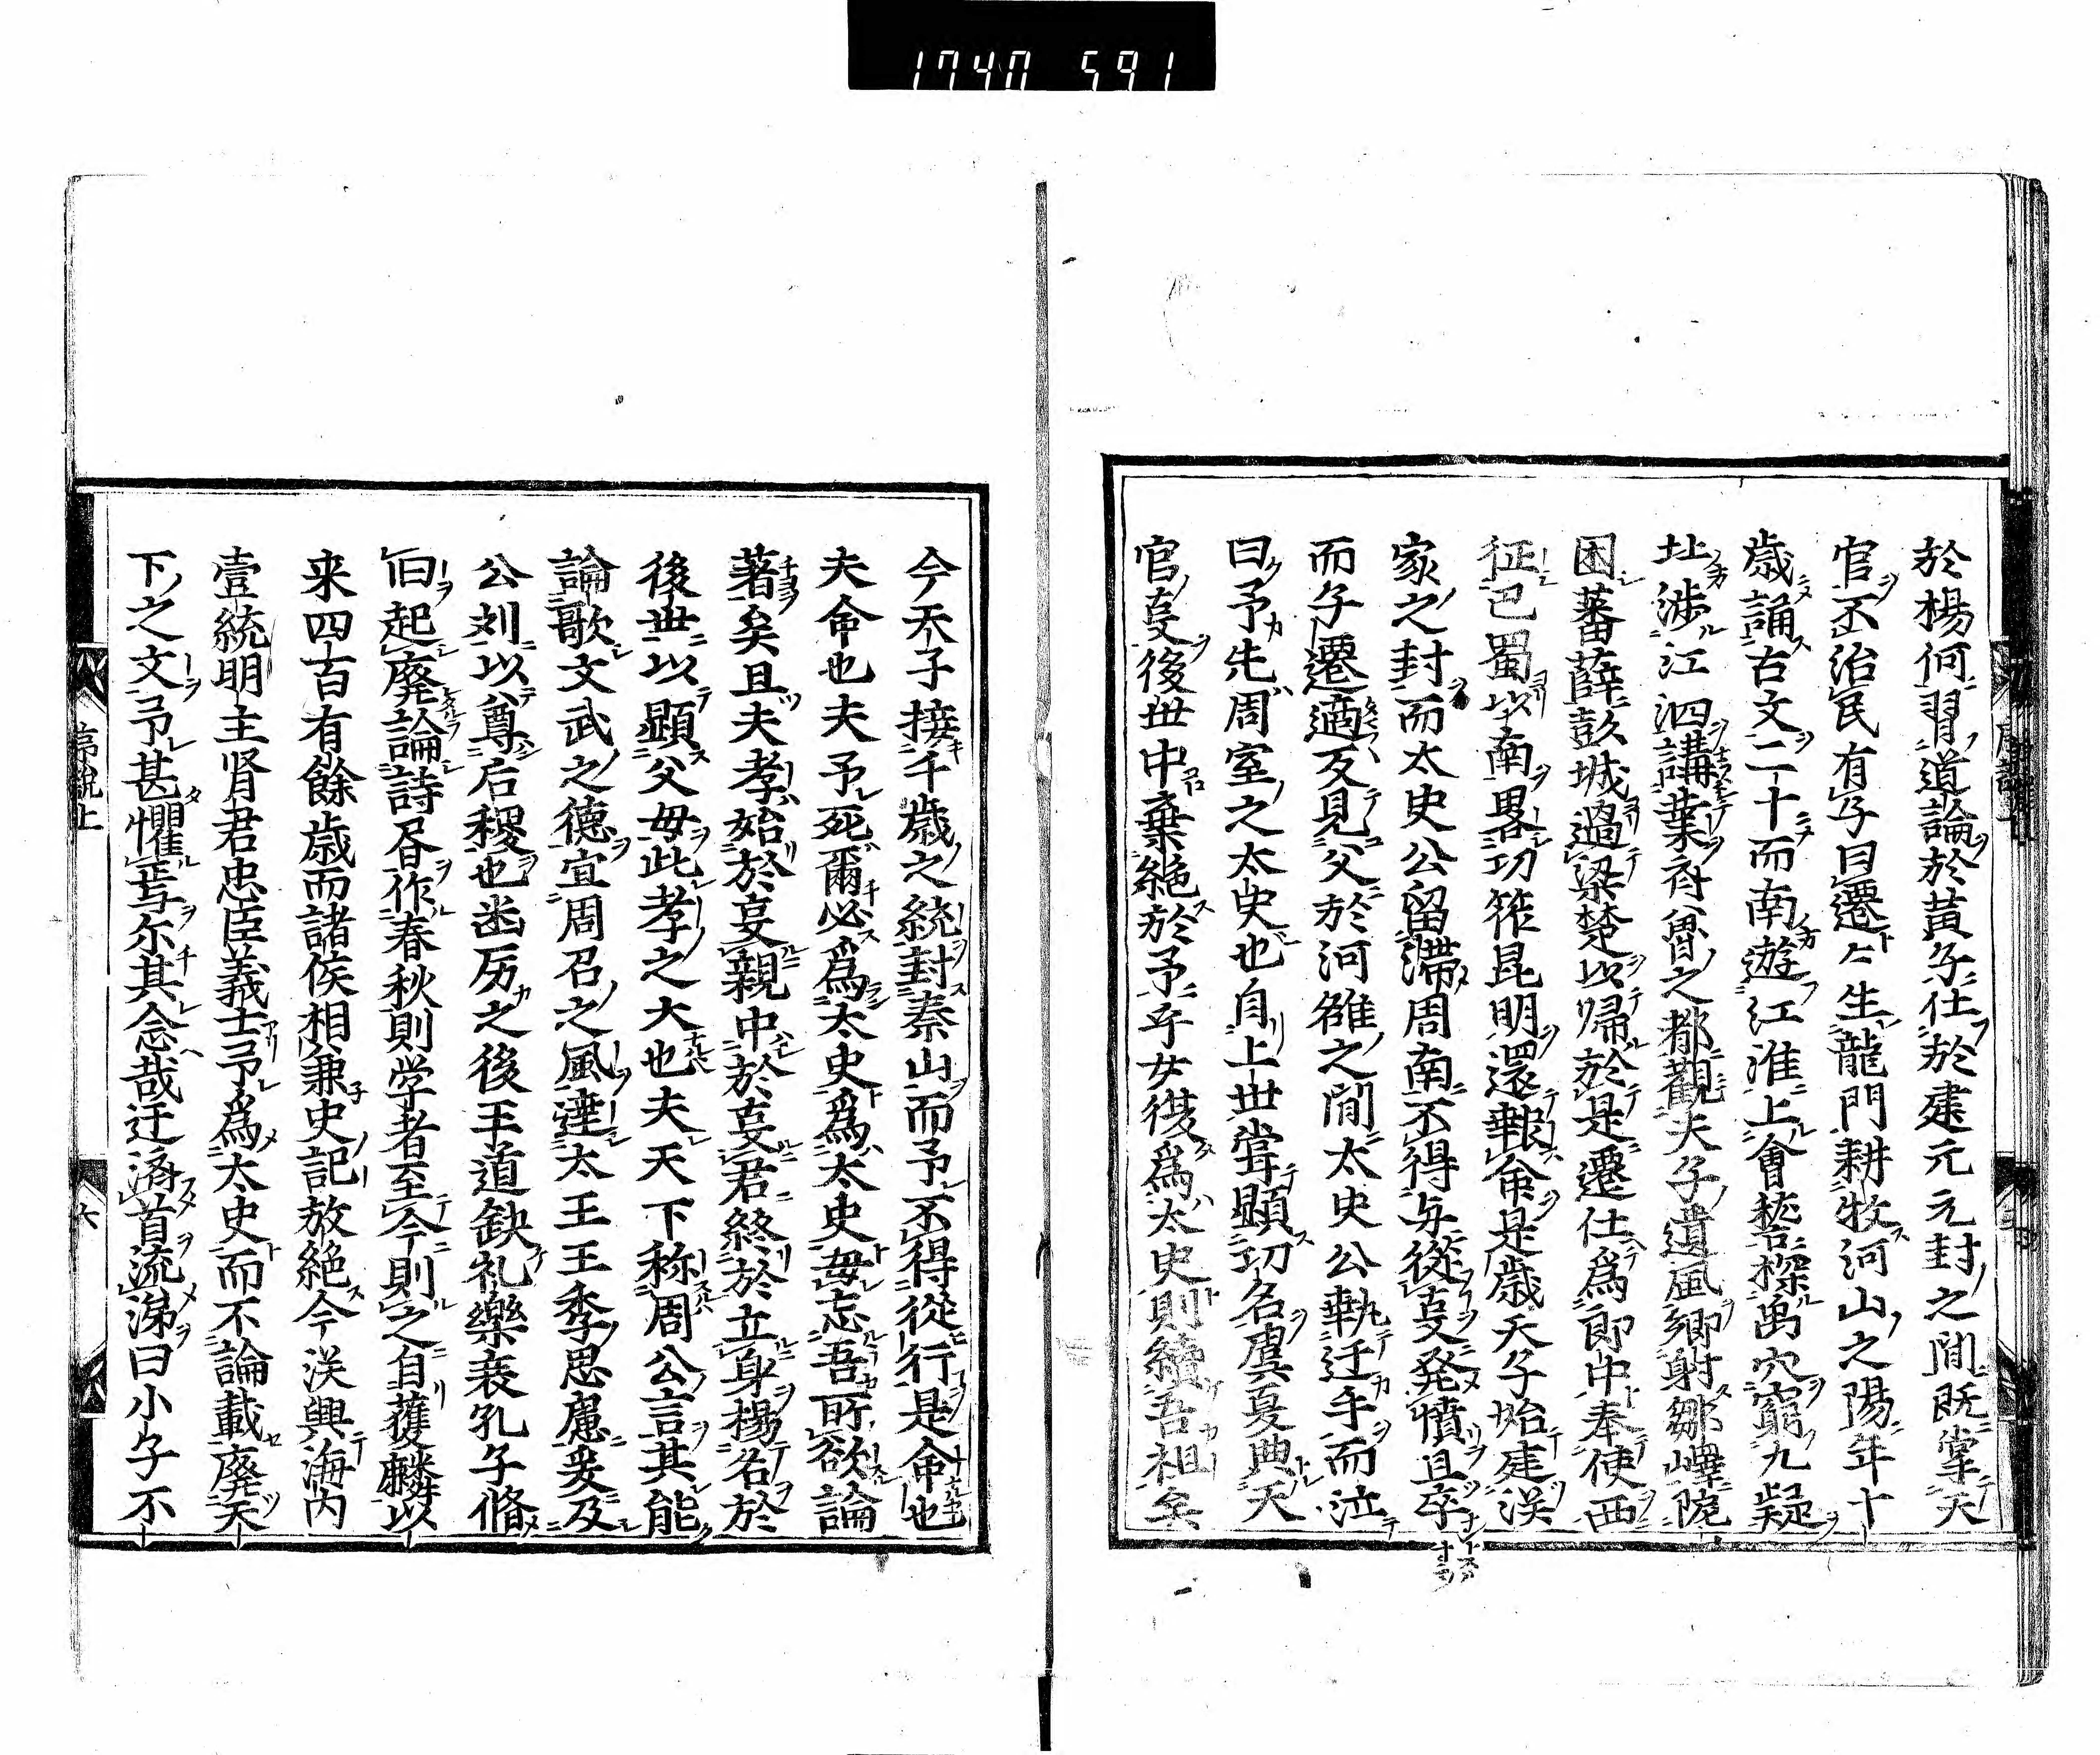 1740 591
於楊何習道論於黃子仕於建元元封之間既掌天
官不治民有子曰遷〻生龍門耕牧河山之陽年十
歳誦古文二十而南遊江淮上會嵇探禹穴窺九疑
址渉江泗講業斉魯之都觀夫子遺風郷射鄒嶧阨
困蕃薛彭城過梁楚以帰於是遷仕爲郎中奉使西
征巴蜀以南畧功筰昆明還報命是歳天子始建漢
家之封而太史公留滯周南不得与從㕝発憤且卒
而子遷適反見父於河雒之間太史公執迁手而泣
曰予先周室之太史也自上世甞顯功名虞夏典天
官㕝後世中棄絶於予乎女復爲太史則續吾祖矣
今天子接千歳之統封泰山而予不得從行是命也
夫命也夫予死爾必爲太史爲太史毋忘吾所欲論
著矣且夫孝始於㕝親中於㕝君終於立身揚名於
後世以顕父母此孝之大也夫天下称周公言其能
論歌文武之德宣周召之風達太王王季思慮爰及
公刘以尊后稷也幽厉之後王道缺礼樂衰孔子脩
旧起廃論詩昏作春秋則学者至今則之自獲麟以
来四百有餘歳而諸侯相兼史記放絶今漢興海内
壹統明主肾君忠臣義士予爲太史而不論載廃天
下之文予甚懼焉尓其念哉迁俯首流涕曰小子不
序説上
六